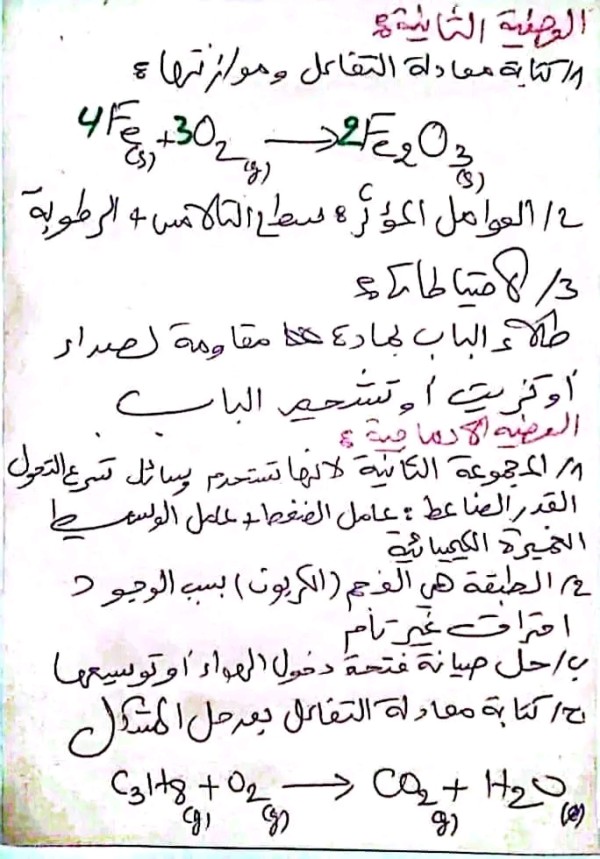 الوضعية الثانية :
1/ كتابة معادلة التفاعل وموازنتها :
4Fe(s) + 3O2(g) → 2Fe2O3(s)
2/ العوامل المؤثر : سطح التلامس + الرطوبة
3/ الاحتياطات :
طلاء الباب بمادة مقاومة لصداء
أو تزييت أو تشحيم الباب
الوضعية الادماجية :
1/ المجموعة الثانية لانها تستخدم وسائل تسرع التحول
القدر الضاغط : عامل الضغط + عامل الوسيط
الخميرة الكيميائية
2/ الطبقة هي الفحم (الكربون) بسب الوجود
احتراق غير تام
ب/ حل صيانة فتحة دخول الهواء أو توسيعها
ج/ كتابة معادلة التفاعل بعد حل المشكل
C3H8(g) + O2(g) → CO2(g) + H2O(l)